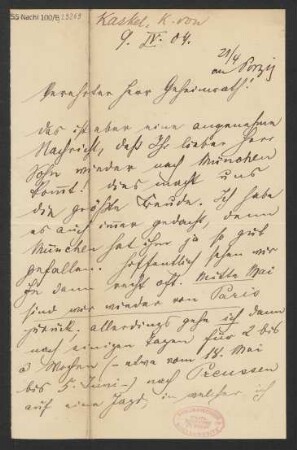 55 Nachl 100/B
Kaskel, K. von
9. IV. 04.
21/4
an Porzig
Verehrter Herr Geheimrath!
Das ist aber eine angenehme
Nachricht, daß Ihr lieber Herr
Sohn wieder nach München
kommt! Dies macht uns
die größte Freude. Ich habe
es auch immer gedacht, denn
München hat ihm ja so gut
gefallen. Hoffentlich sehen wir
ihn dann recht oft. Mitte Mai
sind wir wieder von Paris
zurück, allerdings gehe ich dann
nach einigen Tagen für 2 bis
3 Wochen (- etwa vom 18. Mai
bis 5. Juni -) nach Preussen
auf eine Jagd, in welcher ich